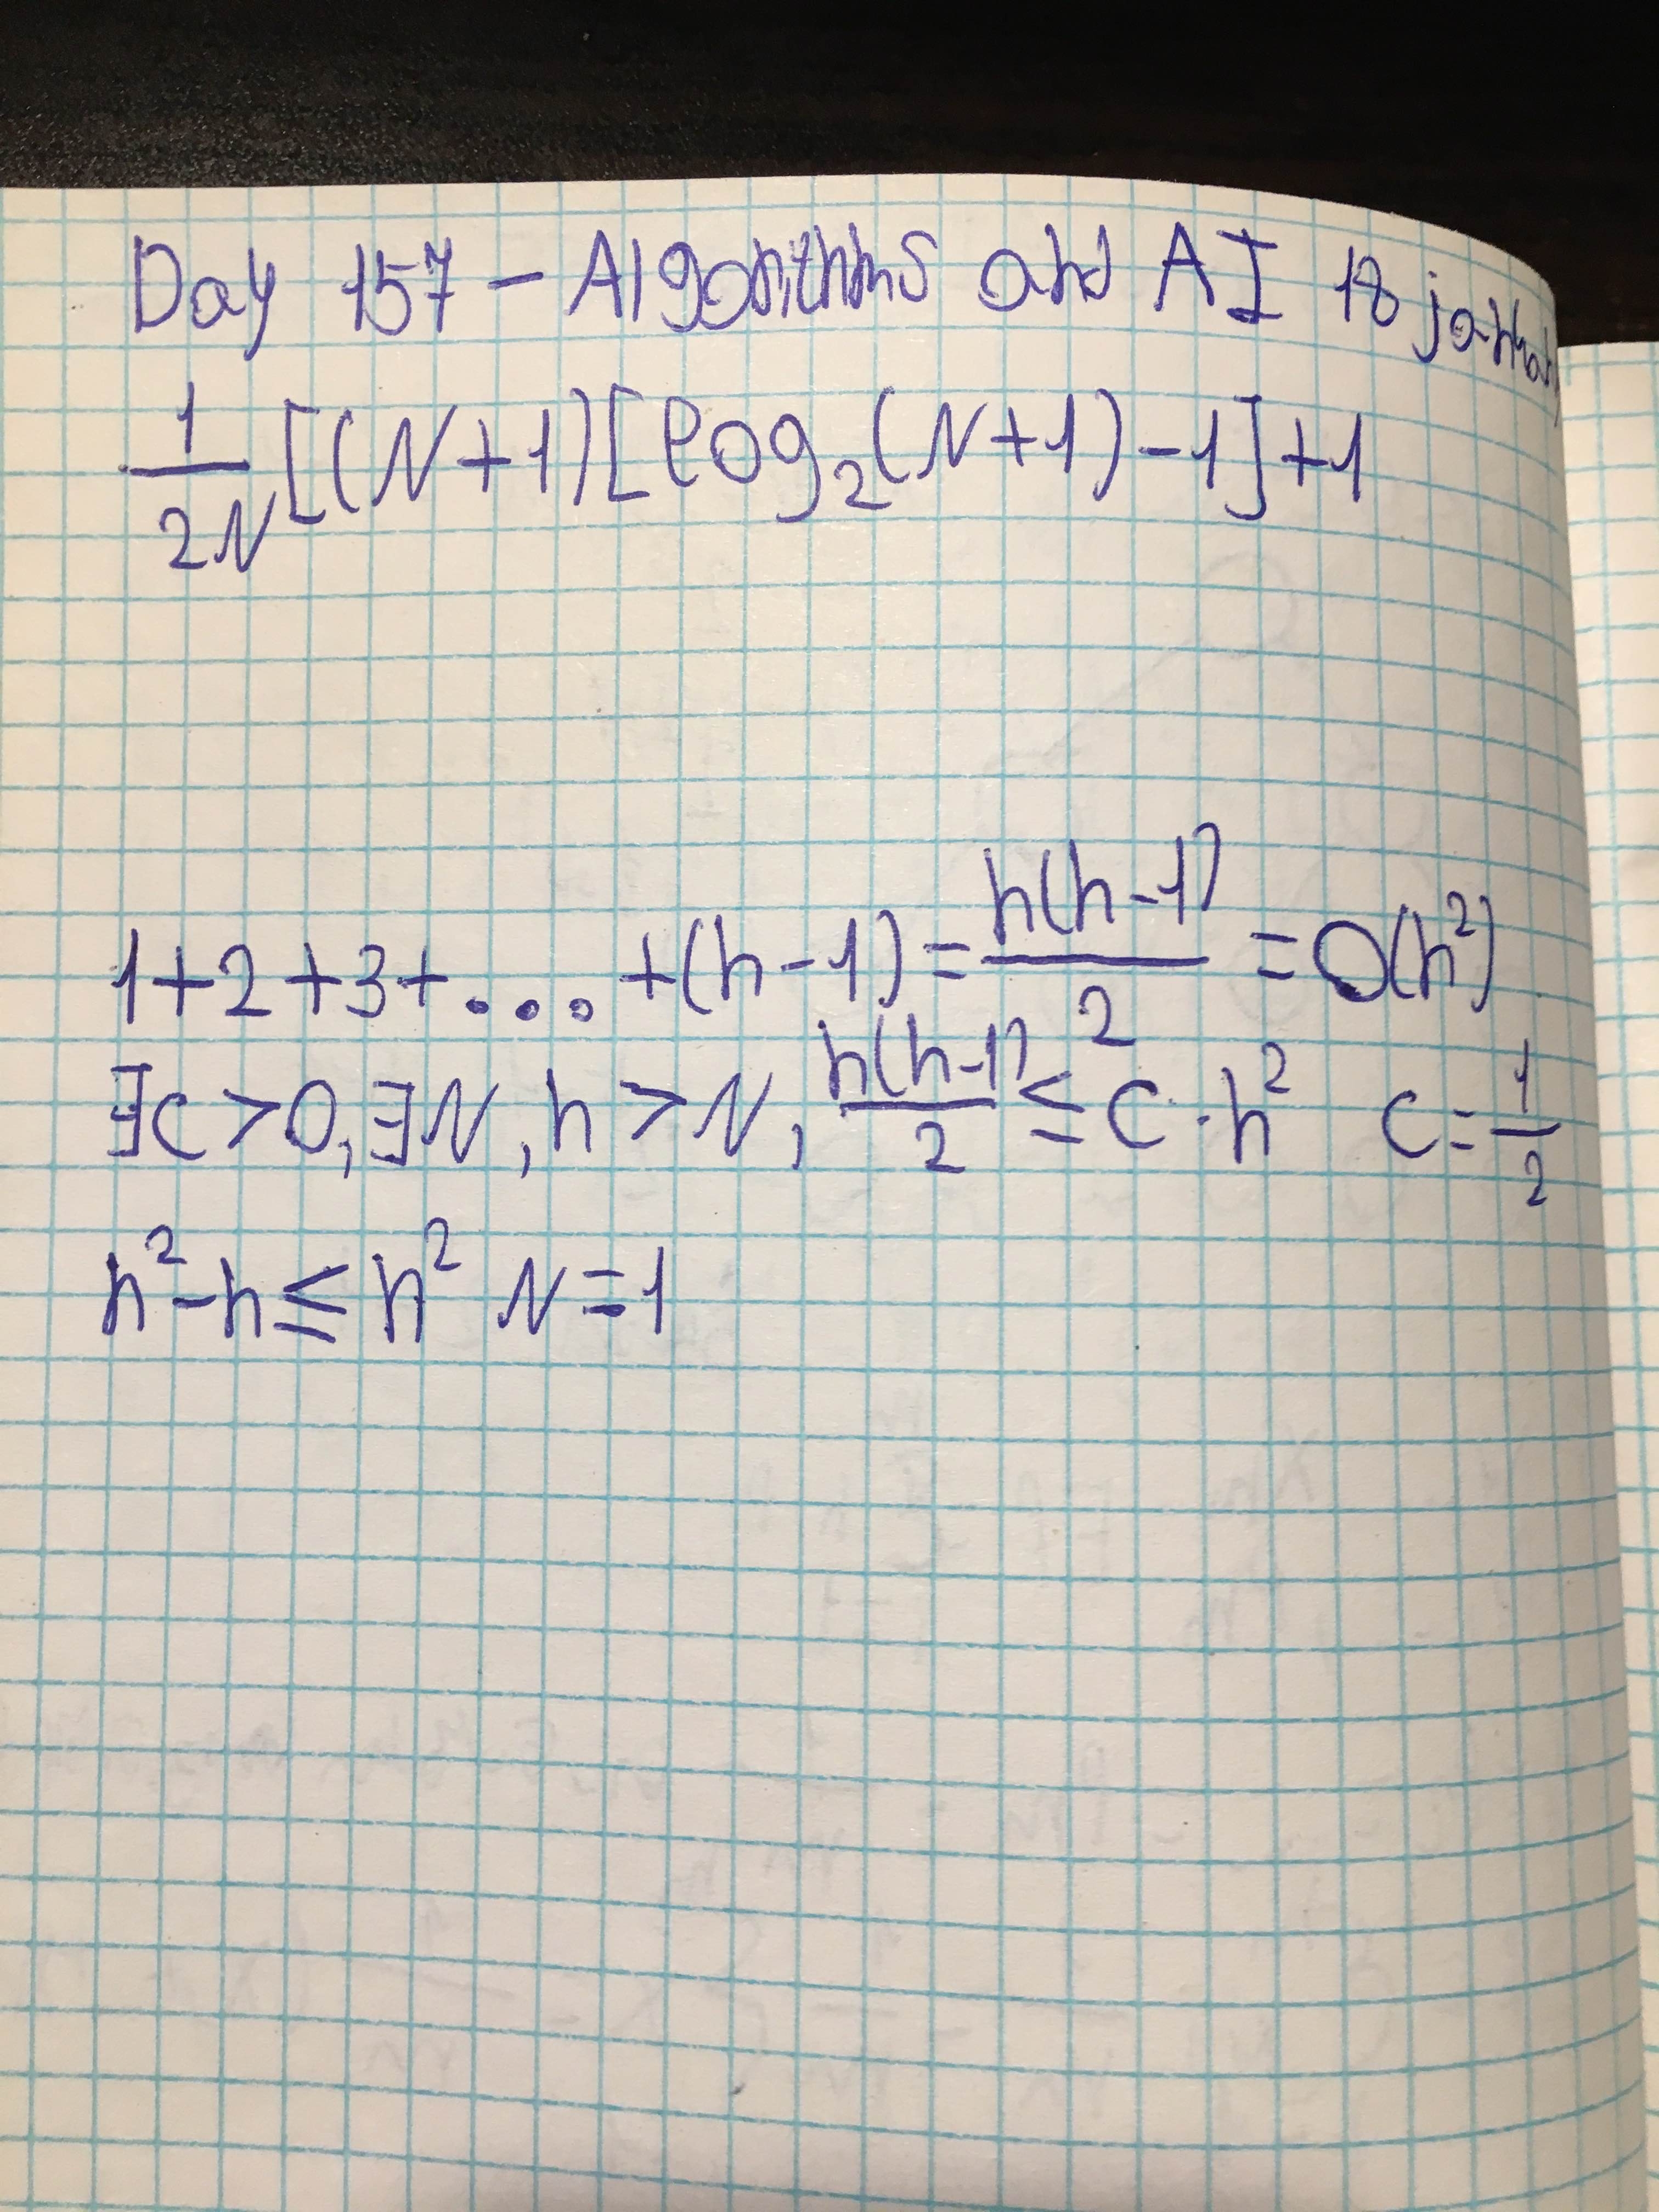 Day 157 - Algorithms and AI 18 january
1/2N [(N+1)[log₂(N+1)-1]+1
1+2+3+...+(n-1)=n(n-1)/2=O(n²)
∃C>0,∃N,n>N,n(n-1)/2≤C·n² C=1/2
n²-n≤n² N=1